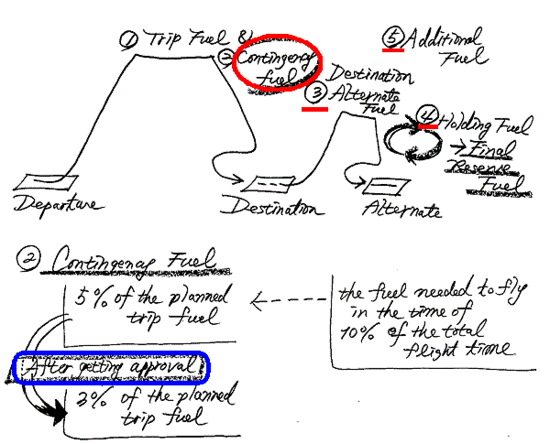 ① Trip Fuel &
② Contingency
fuel
⑤ Additional
Fuel
Destination
③ Alternate
Fuel
④ Holding Fuel
→ Final
Reserve
Fuel
Departure
Destination
Alternate
② Contingency Fuel
5% of the planned
trip fuel
the fuel needed to fly
in the time of
10% of the total
flight time
After getting approval
3% of the planned
trip fuel